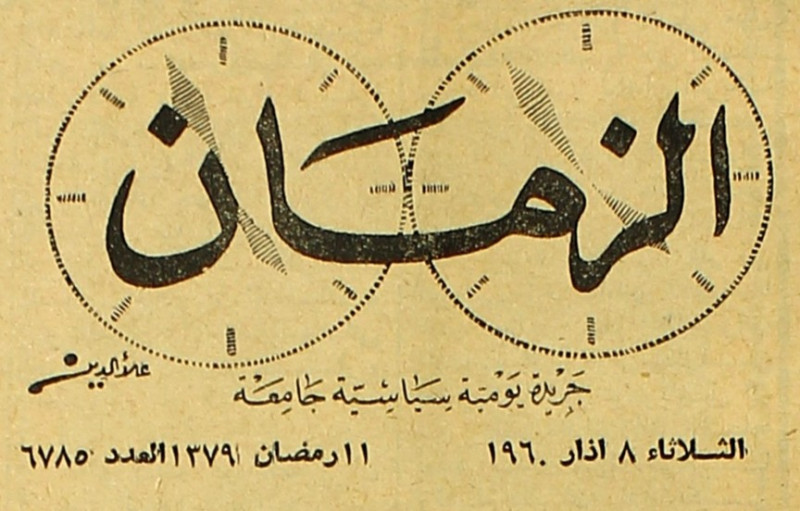 الزمان
علاءالدين
جَرْيَدة يَوْميَة سِيَاسْيَّة جَامِعَة
الثلاثاء ٨ اذار ١٩٦٠ ١١ رمضان ١٣٧٩ العدد ٦٧٨٥